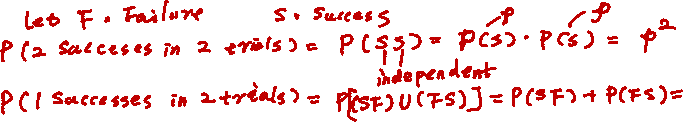 Let F = Failure S = Success
p p
P(2 Successes in 2 trials) = P(SS) = P(S) · P(S) = p²
independent
P(1 Successes in 2 trials) = P[(SF) U (FS)] = P(SF) + P(FS) =